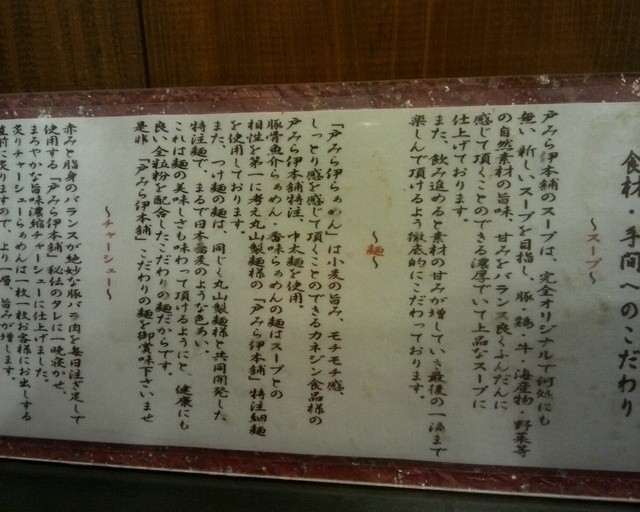 食材・手間へのこだわり
～スープ～
戸みら伊本舗のスープは、完全オリジナルで何処にも
無い新しいスープを目指し、豚・鶏・牛・海産物・野菜等
の自然素材の旨味、甘みをバランス良くふんだんに
感じて頂くことのできる濃厚でいて上品なスープに
仕上げております。
また、飲み進めると素材の甘みが増していき最後の一滴まで
楽しんで頂けるよう徹底的にこだわっております。
～麺～
「戸みら伊らぁめん」は小麦の旨み、モチモチ感、
しっとり感を感じて頂くことのできるカネジン食品様の
戸みら伊本舗特注、中太麺を使用。
豚骨魚介らぁめん・香味らぁめんの麺はスープとの
相性を第一に考え丸山製麺様の「戸みら伊本舗」特注細麺
を使用しております。
また、つけ麺の麺は、同じく丸山製麺様と共同開発した
特注麺で、まるで日本蕎麦のような色あい。
これは麺の美味しさも味わって頂けるようにと、健康にも
良い全粒粉を配合したこだわりの麺だからです。
是非、「戸みら伊本舗」こだわりの麺を御賞味下さいませ
～チャーシュー～
赤みと脂身のバランスが絶妙な豚バラ肉を毎日注ぎ足して
使用する「戸みら伊本舗」秘伝のタレに一晩寝かせ、
まろやかな旨味濃縮チャーシューに仕上げました。
炙りチャーシューらぁめんは一枚一枚お客様にお出しする
直前に炙りますので、より一層、旨みが増します。